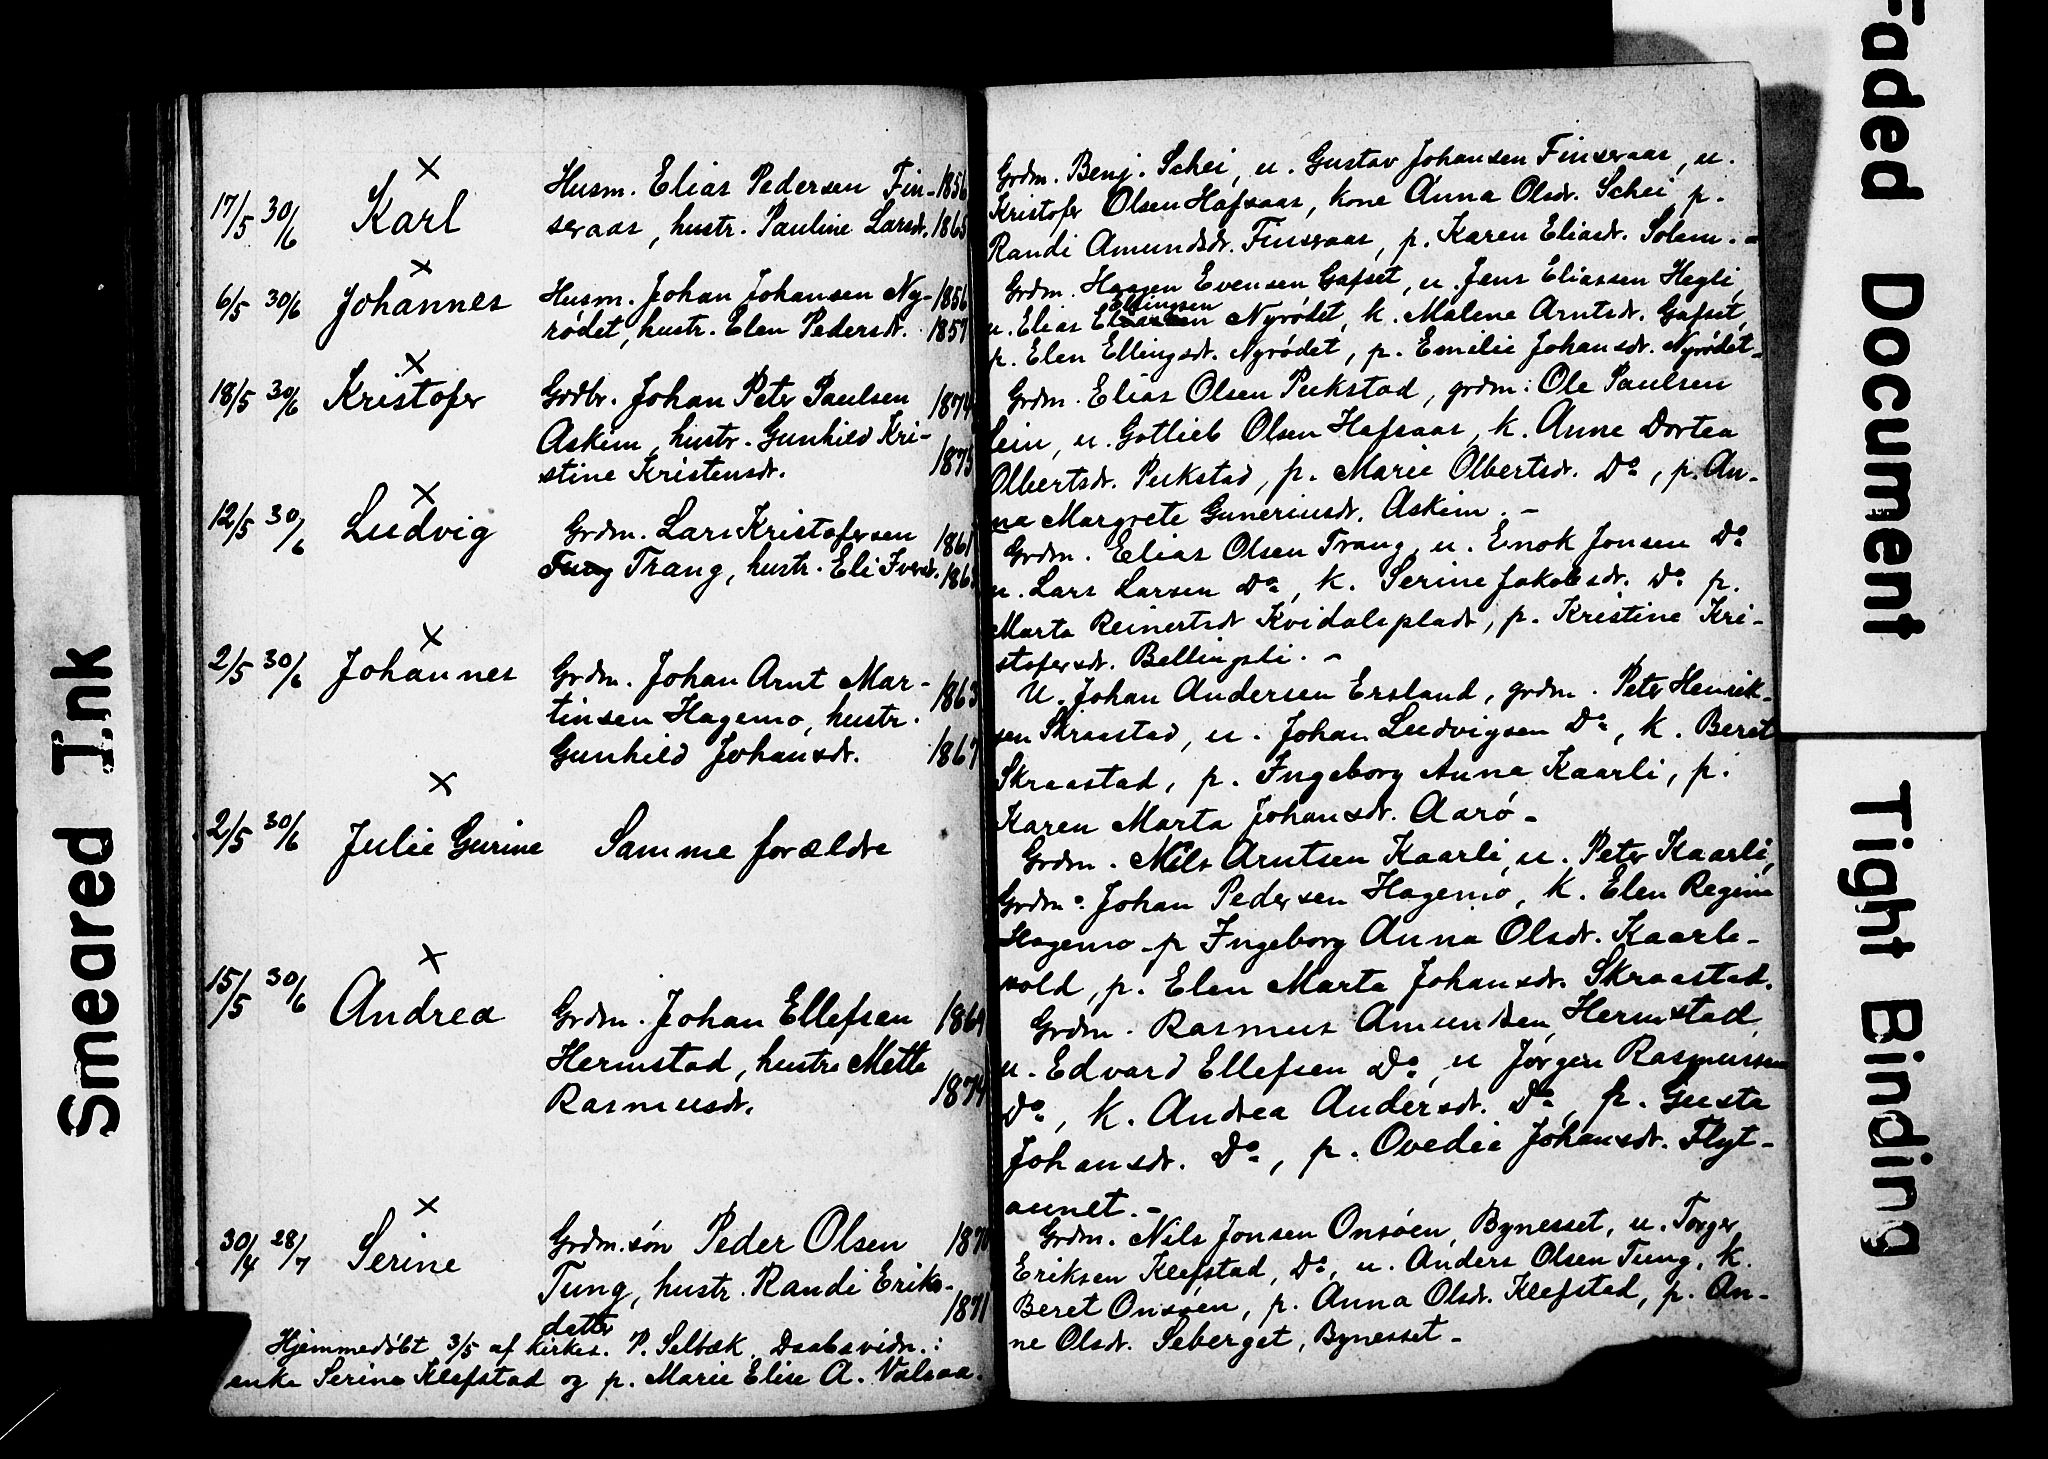 17/5 30/6 Karl
Husm. Elias Pedersen Fin- 1856
seraas, hustr. Pauline Larsdr. 1865
6/5 30/6 Johannes
Husm. Johan Johansen Ny- 1856
rødet, hustr. Elen Pedersdr. 1857
18/5 30/6 Kristofer
Grdbr. Johan Peter Paulsen 1874
Askim, hustr. Gunhild Kri-
stine Kristensdr. 1875
12/5 30/6 Ludvig
Grdm. Lars Kristofersen 1861
Trang, hustr. Eli Iversdr.
2/5 30/6 Johannes
Grdm. Johan Arnt Mar- 1863
tinsen Hagemo, hustr.
Gunhild Johansdr. 1867
2/5 30/6 Julie Gurine
Samme forældre
15/5 30/6 Andrea
Grdm. Johan Ellefsen 1864
Hermstad, hustru Mette
Rasmusdr. 1874
30/4 28/7 Serine
Grdm.søn Peder Olsen 1870
Tung, hustr. Randi Eriks-
datter 1871
Hjemmedøbt 3/5 af kirkes. P. Selbæk. Daabsvidn.:
enke Serine Klefstad og p. Marie Elise A. Valsaa.
Grdm. Benj. Schei, u. Gustav Johansen Finseraas, u.
Kristofer Olsen Hafsaas, kone Anna Olsdr. Schei, p.
Randi Amundsdr. Finseraas, p. Karen Eliasdr. Solem. -
Grdm. Haagen Evensen Gafset, u. Jens Eliassen Hegli,
u. Elias Ellingsen Nyrødet, k. Malene Arntsdr. Gafset,
p. Elen Ellingsdr. Nyrødet, p. Emilie Johansdr. Nyrødet -
Grdm. Elias Olsen Pukstad, grdm. Ole Paulsen
lein, u. Gotlieb Olsen Hafsaas, k. Anne Dortea
Olbertsdr. Pukstad, p. Marie Olbertsdr. Do, p. An-
na Margrete Guneriusdr. Askim. -
Grdm. Elias Olsen Trang, u. Enok Jonsen Do
u. Lars Larsen Do, k. Serine Jakobsdr. Do p.
Marta Reinertsdr Kvidalsplads, p. Kristine Kri-
stofersdr. Bellingsli. -
U. Johan Andersen Ersland, grdm. Peter Henrik-
sen Skraastad, u. Johan Ludvigsen Do, k. Beret
Skraastad, p. Ingeborg Anna Kaarli, p.
Karen Marta Johansdr. Aarø -
Grdm. Nils Arntsen Kaarli, u. Peter Kaarli,
Grdm. Johan Pedersen Hagemo, k. Elen Regine
Hagemo - p Ingeborg Anna Olsdr. Kaarle-
vold, p. Elen Marta Johansdr. Skraastad.
Grdm. Rasmus Amundsen Hermstad
u. Edvard Ellefsen Do, u Jørgen Rasmussen
Do, k. Andrea Andersdr. Do, p. Gusta
Johansdr. Do, p. Ovedie Johansdr. Flyt-
aunet. -
Grdm. Nils Jonsen Onsøien, Bynesset, u. Torger
Eriksen Klefstad, Do, u. Anders Olsen Tung, k.
Beret Onsøien, p. Anna Olsdr. Klefstad, p. An-
ne Olsdr. Seberget, Bynesset -
Smeared Ink
Faded Document
Tight Binding